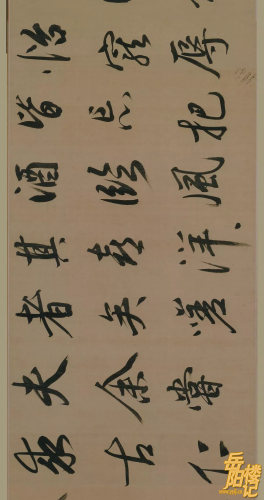 怡寵辱
皆忘把
酒臨風
其喜洋〻
者矣嗟
夫余嘗
求古仁
岳阳楼记